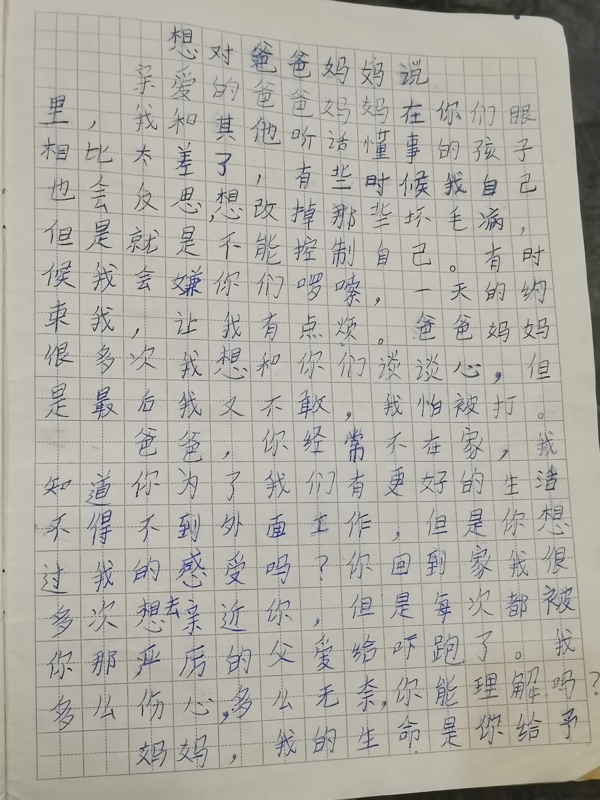 想对爸爸妈妈说
亲爱的爸爸妈妈在你们眼
里,我和其他听话懂事的孩子
相比太差了,有些时候我自己
也会反思,想改掉那些坏毛病,
但是就是不能控制自己。有时
候我会嫌你们啰嗦,一天的约
束我,让我有点烦。爸爸妈妈
很多次我想和你们谈谈心,但
是最后我又不敢,我怕被打。
爸爸,你经常不在家,我
知道你为了我们有更好的生活
不得不到外面工作,但是你想
过我的感受吗?你回到家我很
多次想去亲近你,但是每次都被
你那严厉的父爱给吓跑了。我
多么伤心,多么无奈,你能理解吗?
妈妈,我的生命是你给予